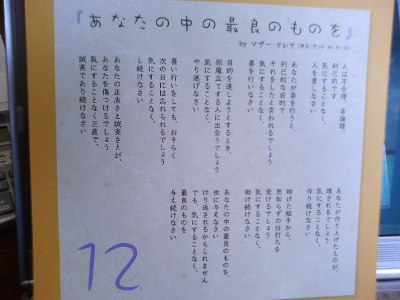 『あなたの中の最良のものを』
by マザー・テレサ
人は不合理、非論理、
利己的です
気にすることなく、
人を愛しなさい
あなたが善を行うと、
利己的な目的で
それをしたと言われるでしょう
気にすることなく、
善を行いなさい
目的を達しようとするとき、
邪魔立てする人に出会うでしょう
気にすることなく、
やり遂げなさい
善い行いをしても、おそらく
次の日には忘れられるでしょう
気にすることなく、
し続けなさい
あなたの正直さと誠実さとが、
あなたを傷つけるでしょう
気にすることなく正直で、
誠実であり続けなさい
あなたが作り上げたものが、
壊されるでしょう
気にすることなく、
作り続けなさい
助けた相手から、
恩知らずの仕打ちを
受けるでしょう
気にすることなく、
助け続けなさい
あなたの中の最良のものを、
世に与えなさい
けり返されるかもしれません
でも、気にすることなく、
最良のものを
与え続けなさい
12